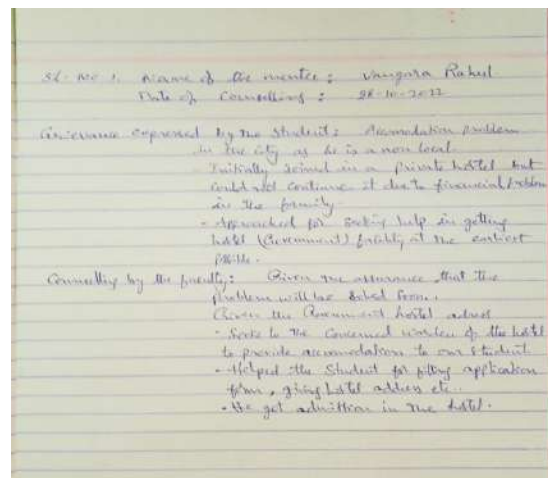 Sl. No 1. Name of the mentee: Vangara Rahul
Date of Counselling: 28-10-2022
Grievance expressed by the student: Accomodation problem
in the city as he is a non local
- Initially Joined in a private hostel but
could not continue it due to financial problem
in the family.
- Approached for seeking help in getting
hostel (Government) facility at the earliest
Counselling by the faculty: Given the assurance that the
problem will be solved soon.
Given the Government hostel
- to the concerned warden of the hostel
to provide accomodation to our student
- Helped the Student for filling application
form, giving hostel address etc..
- He got in the hostel.